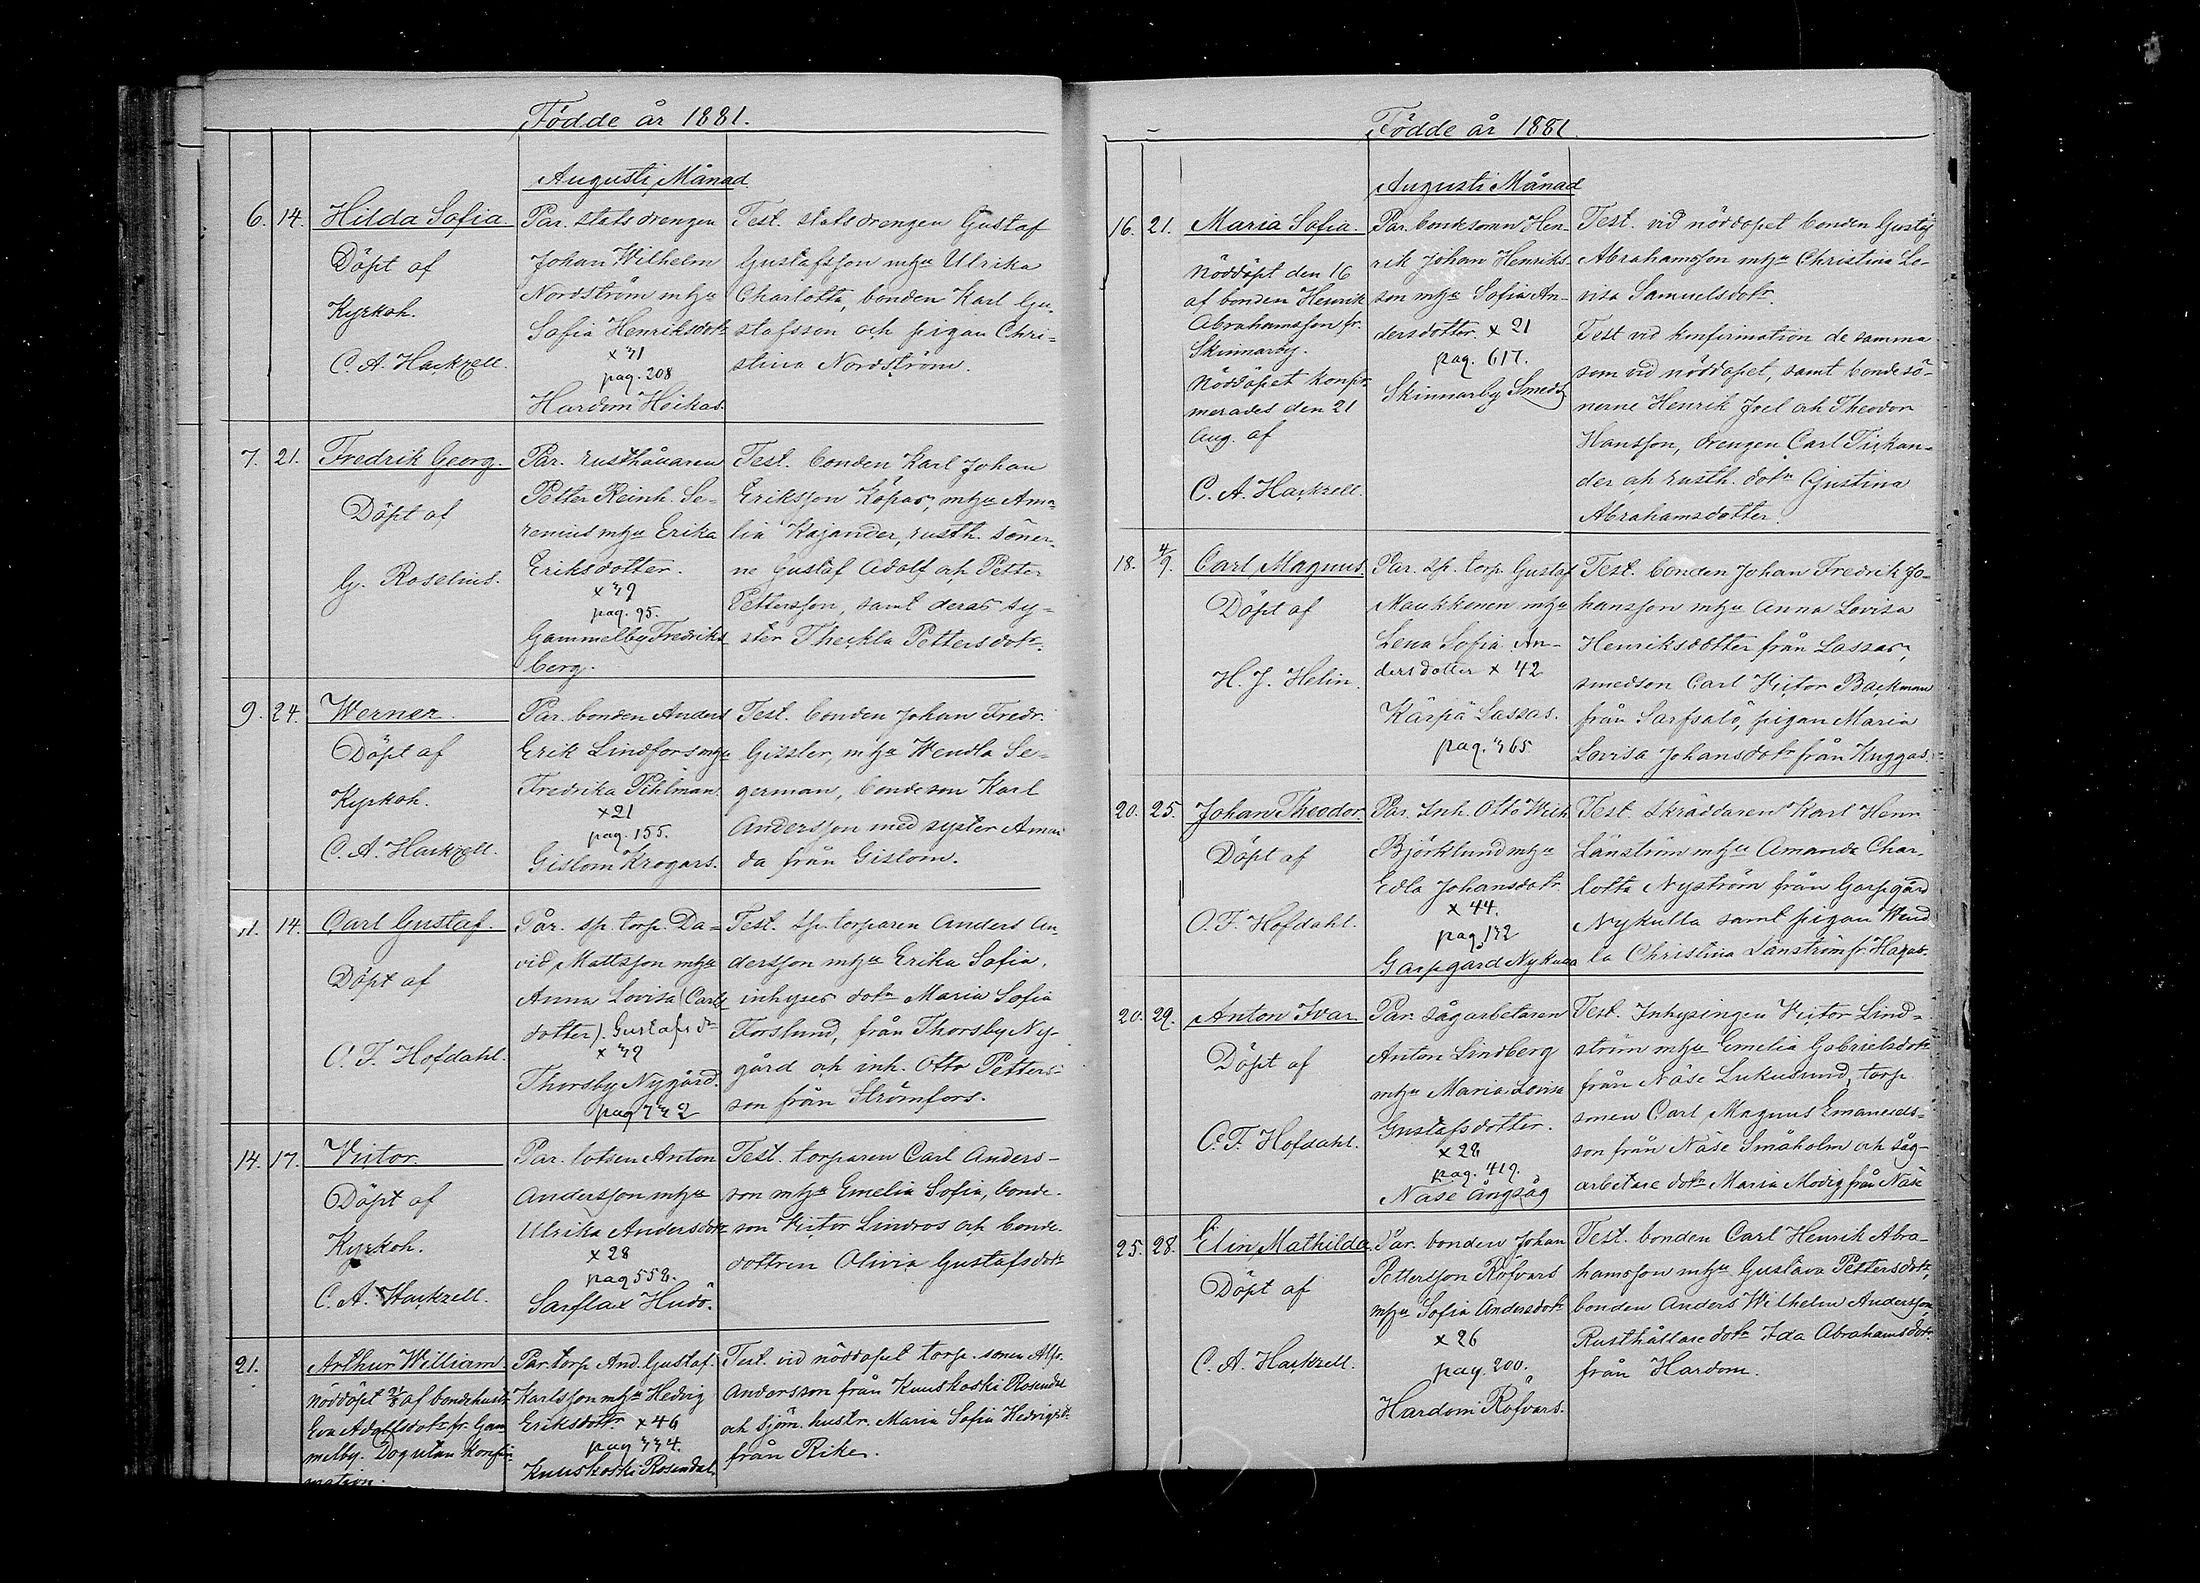 Födde år 1881.
Augusti Månad
6. 14. Hilda Sofia.
Döpt af
Kyrkoh.
C. A. Hackzell.
Par. statsdrengen
Johan Wilhelm
Nordström mhu
Sofia Henriksdotr
pag. 208
Hardom Heikas.
Test. statsdrengen Gustaf
Gustafsson mhu Ulrika
Charlotta, bonden Karl Gu-
stafsson och pigan Chri-
stina Nordström.
7. 21. Fredrik Georg.
Döpt af
G. Roselius.
Par. rusthållaren
Petter Reinh. Se-
renius mhu Erika
Eriksdotter.
pag. 95.
Gammelby Fredriks-
berg.
Test. bonden Karl Johan
Eriksson Köpas, mhu Ama-
lia Kajander, rusth. söner-
ne Gustaf Adolf och Petter
Pettersson, samt deras sy-
ster Theckla Pettersdotr.
9. 24. Werner.
Döpt af
Kyrkoh.
C. A. Hackzell.
Par. bonden Anders
Erik Lindfors mhu
Fredrika Pihlman.
x 21
pag. 155.
Gislom Krogars.
Test. bonden Johan Fredr.
Gissler, mhu Wendla Se-
german, bondeson Karl
Andersson med syster Aman
da från Gislom.
11. 14. Carl Gustaf.
Döpt af
C. F. Hofdahl.
Par. sp. torp. Da-
vid Mattsson mhu
Anna Lovisa (Carls
dotter). Gustafsdr
Thorsby Nygård.
Test. sp. torparen Anders An-
dersson mhu Erika Sofia,
inhyses dotr Maria Sofia
Forslund, från Thorsby Ny-
gård och inh. Otto Petters-
son från Strömfors.
14. 17. Victor.
Döpt af
Kyrkoh.
C. A. Hackzell.
Par. lotsen Anton
Andersson mhu
Ulrika Andersdotr
x 28
pag 552.
Sarflax Hudö.
Test. torparen Carl Anders-
son mhu Emelia Sofia, bonde-
son Victor Lindros och bonde-
dottren Olivia Gustafsdotr
21. Arthur William
Nöddöpt 21/8 af bondehustr.
Eva Adolfsdotr fr. Gam
melby. Dog utan konfir-
mation.
Par. torp. And. Gustaf.
Karlsson mhu Hedvig
Eriksdotr. x 46
Kuuskoski Rosendal.
Test. vid nöddopet torp. sonen Alfr.
Andersson från Kuuskoski Rosendal
och sjöm. hustr. Maria Sofia
från Rike.
Födde år 1881
Augusti Månad
16. 21. Maria Sofia.
Nöddöpt den 16
af bonden Henrik
Abrahamsson fr.
Skinnarby.
Nöddopet konfir-
merades den 21
Aug. af
C. A. Hackzell.
Par. bondesonen Hen-
rik Johan Henriks-
son mhu Sofia An-
dersdotter. x 21
pag. 617.
Skinnarby Smeds
Test. vid nöddopet bonden Gustaf
Abrahamsson mhu Christina Lo-
visa Samuelsdotr.
Test vid konfirmation de samma
som vid nöddopet, samt bondesö-
nerne Henrik Joel och Theodor
Hansson, drengen Carl Tirkan-
der och rusth. dotr Gustina
Abrahamsdotter.
18. 4/9. Carl Magnus.
Döpt af
H. J. Helin.
Par. sp. torp. Gustaf
Maukkonen mhu
Lena Sofia An-
dersdotter x 42
Kärpä Lassas.
Test. bonden Johan Fredrik Jo-
hansson mhu Anna Lovisa
Henriksdotter från Lassas,
smedson Carl Victor Backman
från Sarfsalö, pigan Maria
Lovisa Johansdotr från Kuggas.
20. 25. Johan Theodor.
Döpt af
C. F. Hofdahl.
Par. Inh. Otto Wilh
Björklund mhu
Edla Johansdotr.
x 44.
Garpgård Nykulla
Test. skräddaren Karl Henr
Länström mhu Amanda Char-
lotta Nyström från Garpgård
Nykulla samt pigan Wend
la Christina Länström fr. Hagab.
20. 29. Anton Ivar.
Döpt af
C. F. Hofdahl.
Par. sågarbetaren
Anton Lindberg
mhu Maria Lovisa
Gustafsdotter.
x 28
pag. 419.
Näse Ångsåg
Test. Inhysingen Victor Lind-
ström mhu Emelia Gabrielsdotr
från Näse Lukusund, torp
sonen Carl Magnus Emanuels-
son från Näse Småholm och såg-
arbetare dotr Maria Modig från Näse
25. 28. Elin Mathilda.
Döpt af
C. A. Hackzell.
Par. bonden Johan
Pettersson Röfvars
mhu Sofia Andersdotr
x 26
pag. 200.
Hardom Röfvars.
Test. bonden Carl Henrik Abra-
hamsson mhu Gustava Pettersdotr,
bonden Anders Wilhelm Andersson,
Rusthållare dotr Ida Abrahamsdotr
från Hardom.